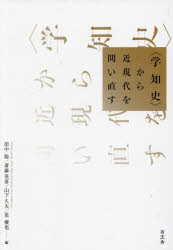 〈学知史〉から
近現代を
問い直す
〈学知史〉
から
近現代を
問い直す
田中 聡・斎藤英喜・山下久夫・星 優也──編
有志舎